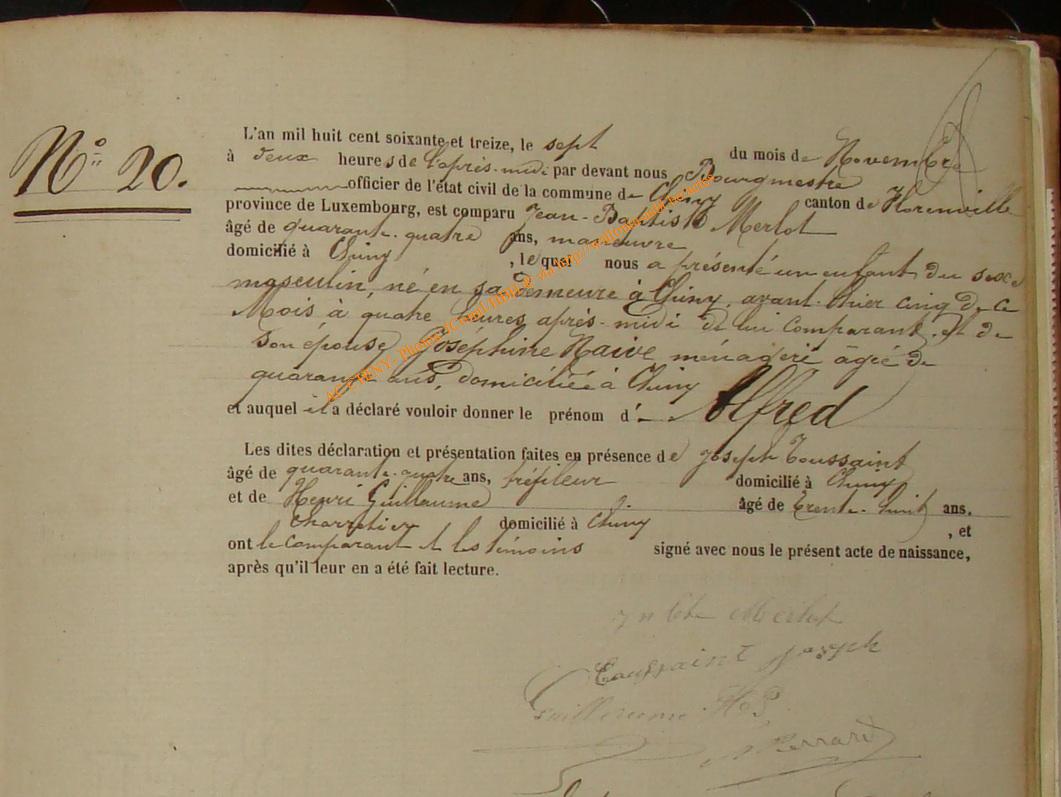 N° 20.
L'an mil huit cent soixante et treize, le sept du mois de Novembre
à deux heures de l'après-midi par devant nous Bourgmestre
officier de l'état civil de la commune de Chiny canton de Florenville
province de Luxembourg, est comparu Jean-Baptiste Merlot
âgé de quarante-quatre ans, manœuvre
domicilié à Chiny, lequel nous a présenté un enfant du sexe
masculin, né en sa demeure à Chiny, avant-hier cinq de ce
Mois à quatre heures après-midi de lui comparant et de
son épouse Joséphine Naive ménagère âgée de
quarante ans, domiciliée à Chiny
et auquel il a déclaré vouloir donner le prénom d'Alfred
Les dites déclaration et présentation faites en présence de Joseph Toussaint
âgé de quarante-quatre ans, tréfileur domicilié à Chiny
et de Henri Guillaume âgé de trente-huit ans.
charretier domicilié à Chiny, et
ont le comparant et les témoins signé avec nous le présent acte de naissance,
après qu'il leur en a été fait lecture.
Merlot
Toussaint Joseph
Guillaume